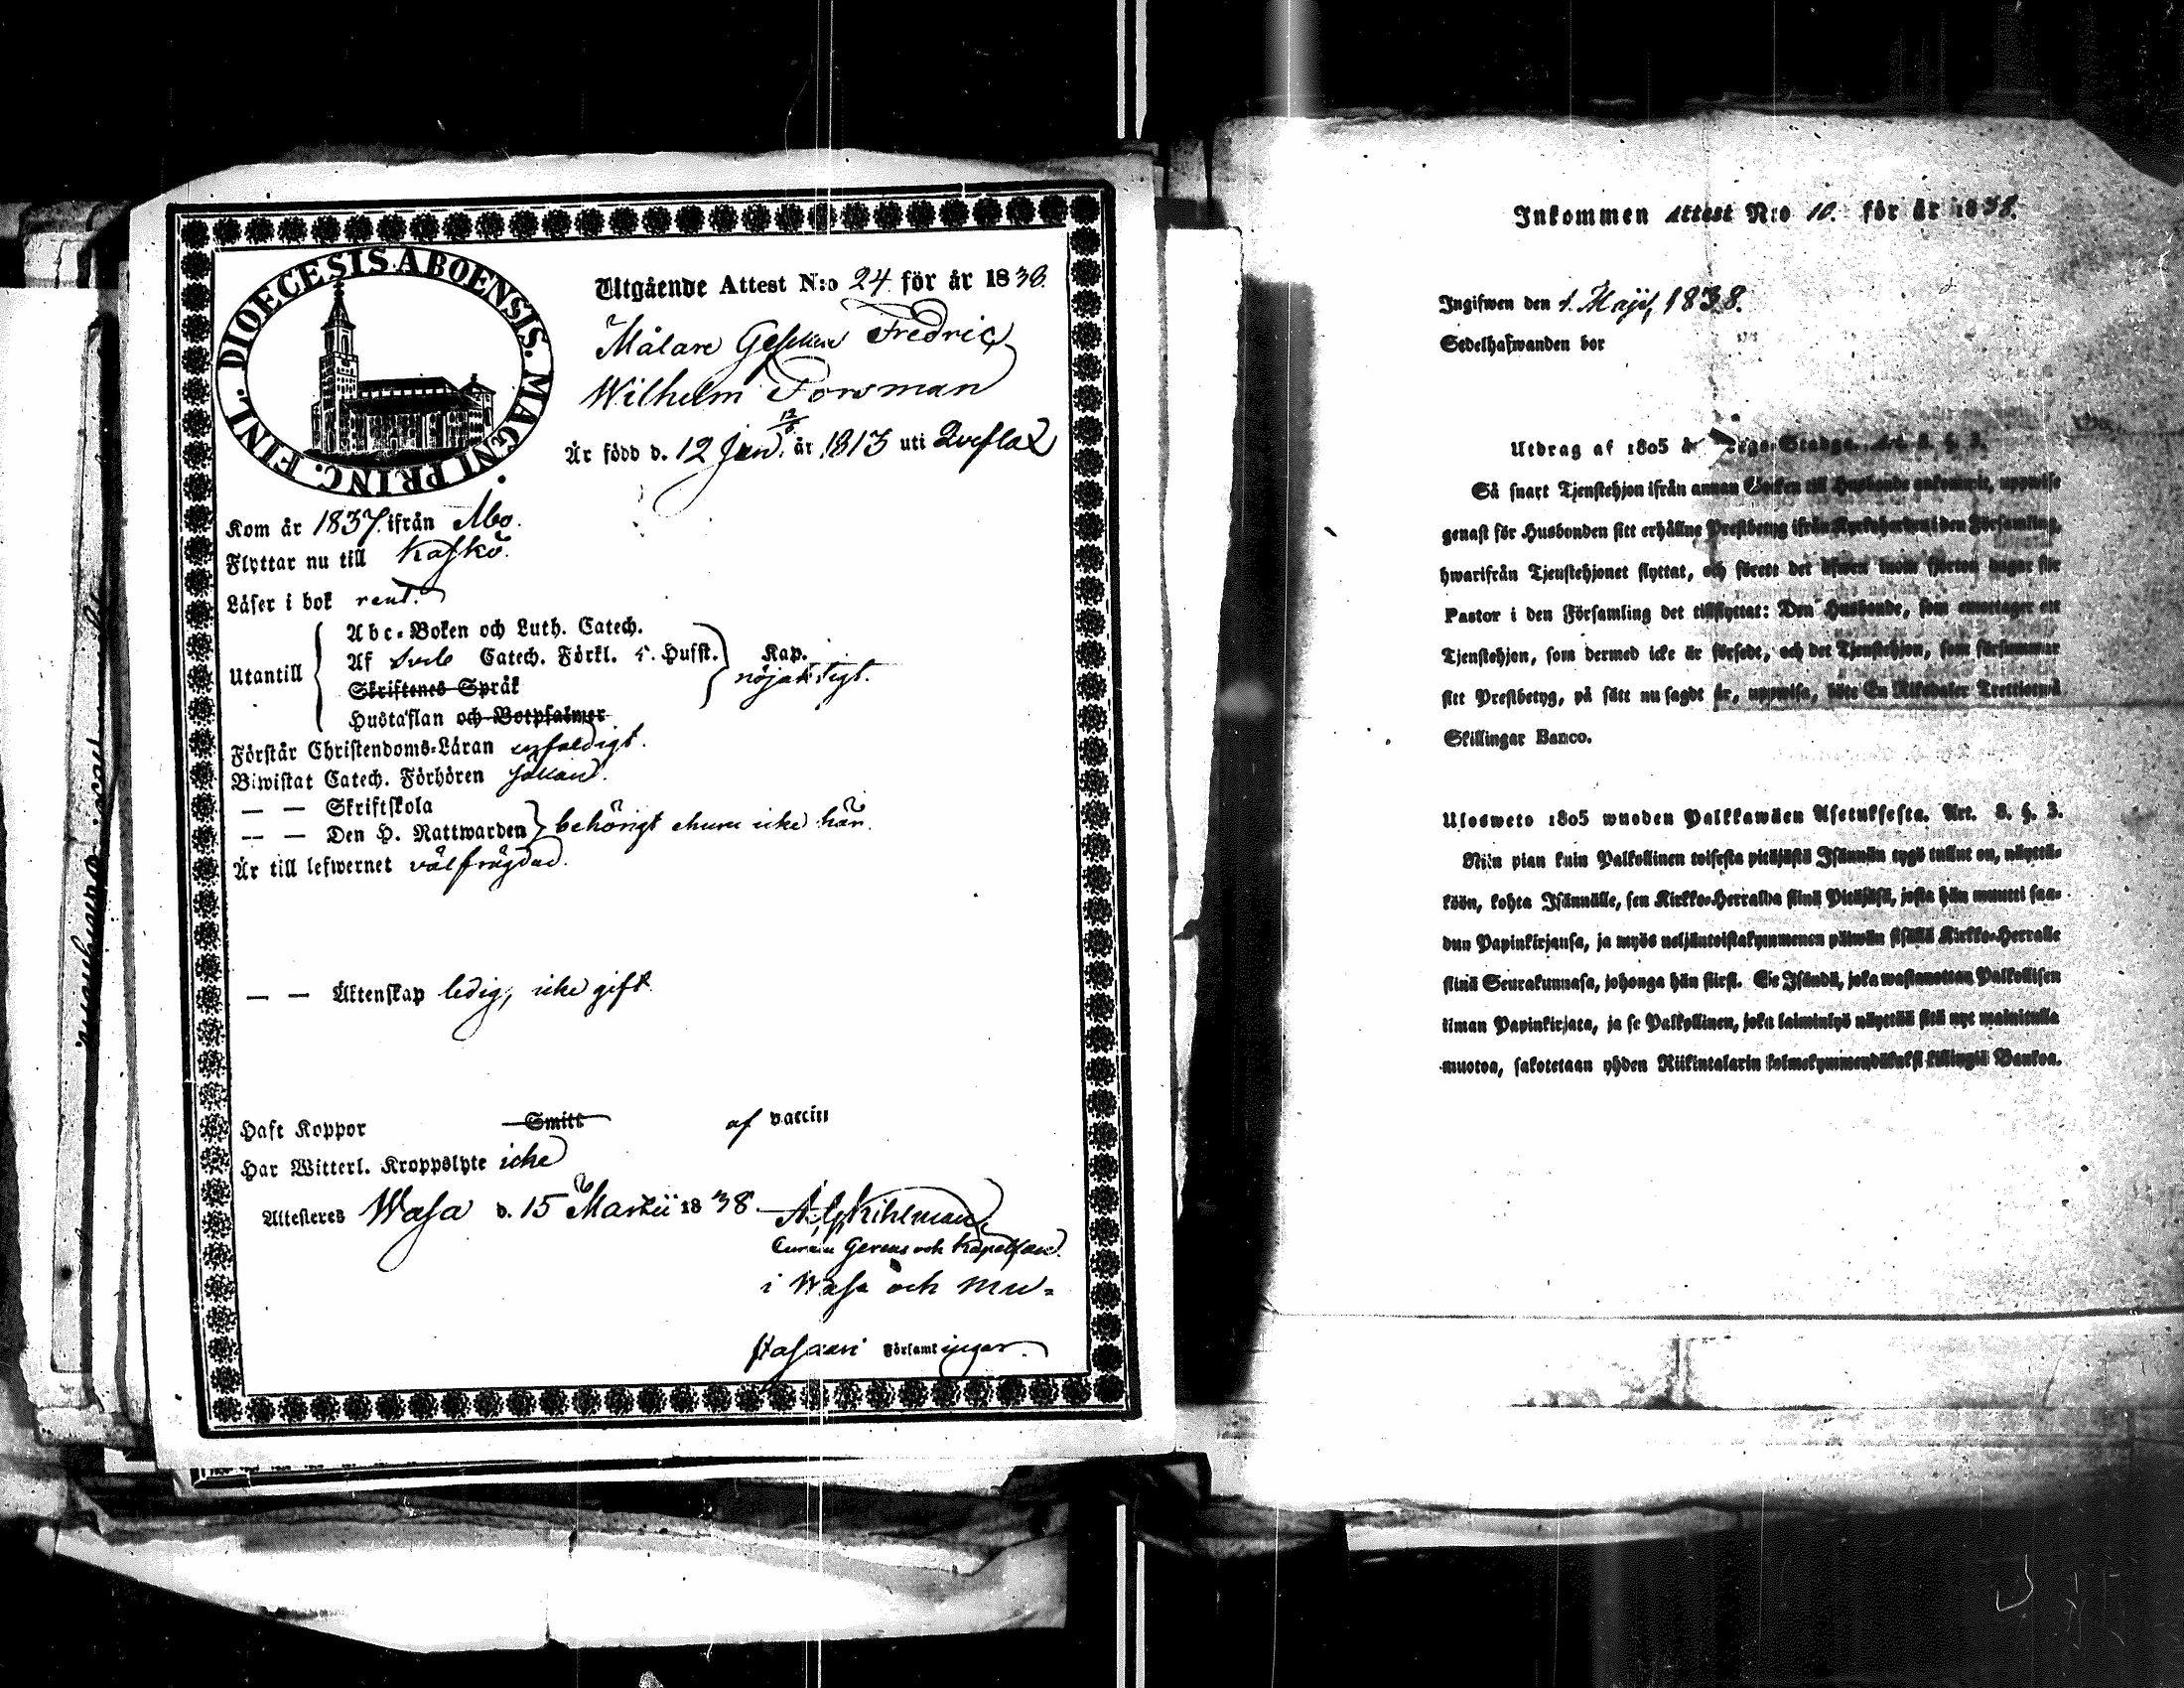 DIOECESIS ABOENSIS. MAGNI PRINC. FINL.
Utgående Attest N:o 24. för år 1838.
Målare Gesellen Fredric
Wilhelm Forsman
Är född d. 12 Jun. 12/6 år 1813 uti Qveflax
Kom år 1837. ifrån Åbo.
Flyttar nu till Kaskö.
Läser i bok rent.
Utantill
Abc-Boken och Luth. Catech.
Af Sveb Catech. Förkl. Husst. Kap.
Skriftenes Språk nöjaktigt.
Hustaflan och Botpsalmer
Förstår Christendoms-Läran enfaldigt.
Biwistat Catech. Förhören sällan.
— — Skriftskola
— — Den H. Nattwarden behörigt ehuru icke här.
Är till lefwernet välfrägdad.
— — Äktenskap ledig, icke gift
Haft Koppor Smitt af vaccin
Har Witterl. Kroppslyte icke
Attesteras Wasa d. 15 Martii 1838. A. G. Kihlman
Curam Gerens och Kapellan
i Wasa och Mu-
stasaari Församlingar.
Inkommen Attest N:o 10. för år 1838.
Ingifwen den 1. Maji, 1838.
Sedelhafwanden bor
Utdrag af 1805 års Lego-Stadga. Art. 8. §. 3.
Så snart Tjenstehjon ifrån annan Socken till Husbonde ankommit, uppwise
genast för Husbonden sitt erhållne Prestbetyg ifrån Kyrkoherden i den Församling,
hwarifrån Tjenstehjonet flyttat, och förete det äfwen inom fjorton dagar för
Pastor i den Församling det tillflyttat: Den Husbonde, som emottager ett
Tjenstehjon, som dermed icke är försedt, och det Tjenstehjon, som försummar
sitt Prestbetyg, på sätt nu sagdt är, uppwisa, böte En Riksdaler Trettiotwå
Skillingar Banco.
Uloswetö 1805 wuoden Palkkawäen Asetuksesta. Art. 8. §. 3.
Niin pian kuin Palkollinen toisesta pitäjästä Isännän tygö tullut on, näyttä-
köön, kohta Isännälle, sen Kirkko-Herralda siinä Pitäjäsä, josta hän muutti saa-
dun Papinkirjansa, ja myös neljäntoistakymmenen päiwän sisällä Kirkko-Herralle
siinä Seurakunnasa, johonga hän siirsi. Se Isändä, joka wastanottaa Palkollisen
ilman Papinkirjata, ja se Palkollinen, joka laiminlyö näyttää sitä nyt mainitulla
muotoa, sakotetaan yhden Riikintalarin kolmekymmendäkaksi killingiä Bankoa.